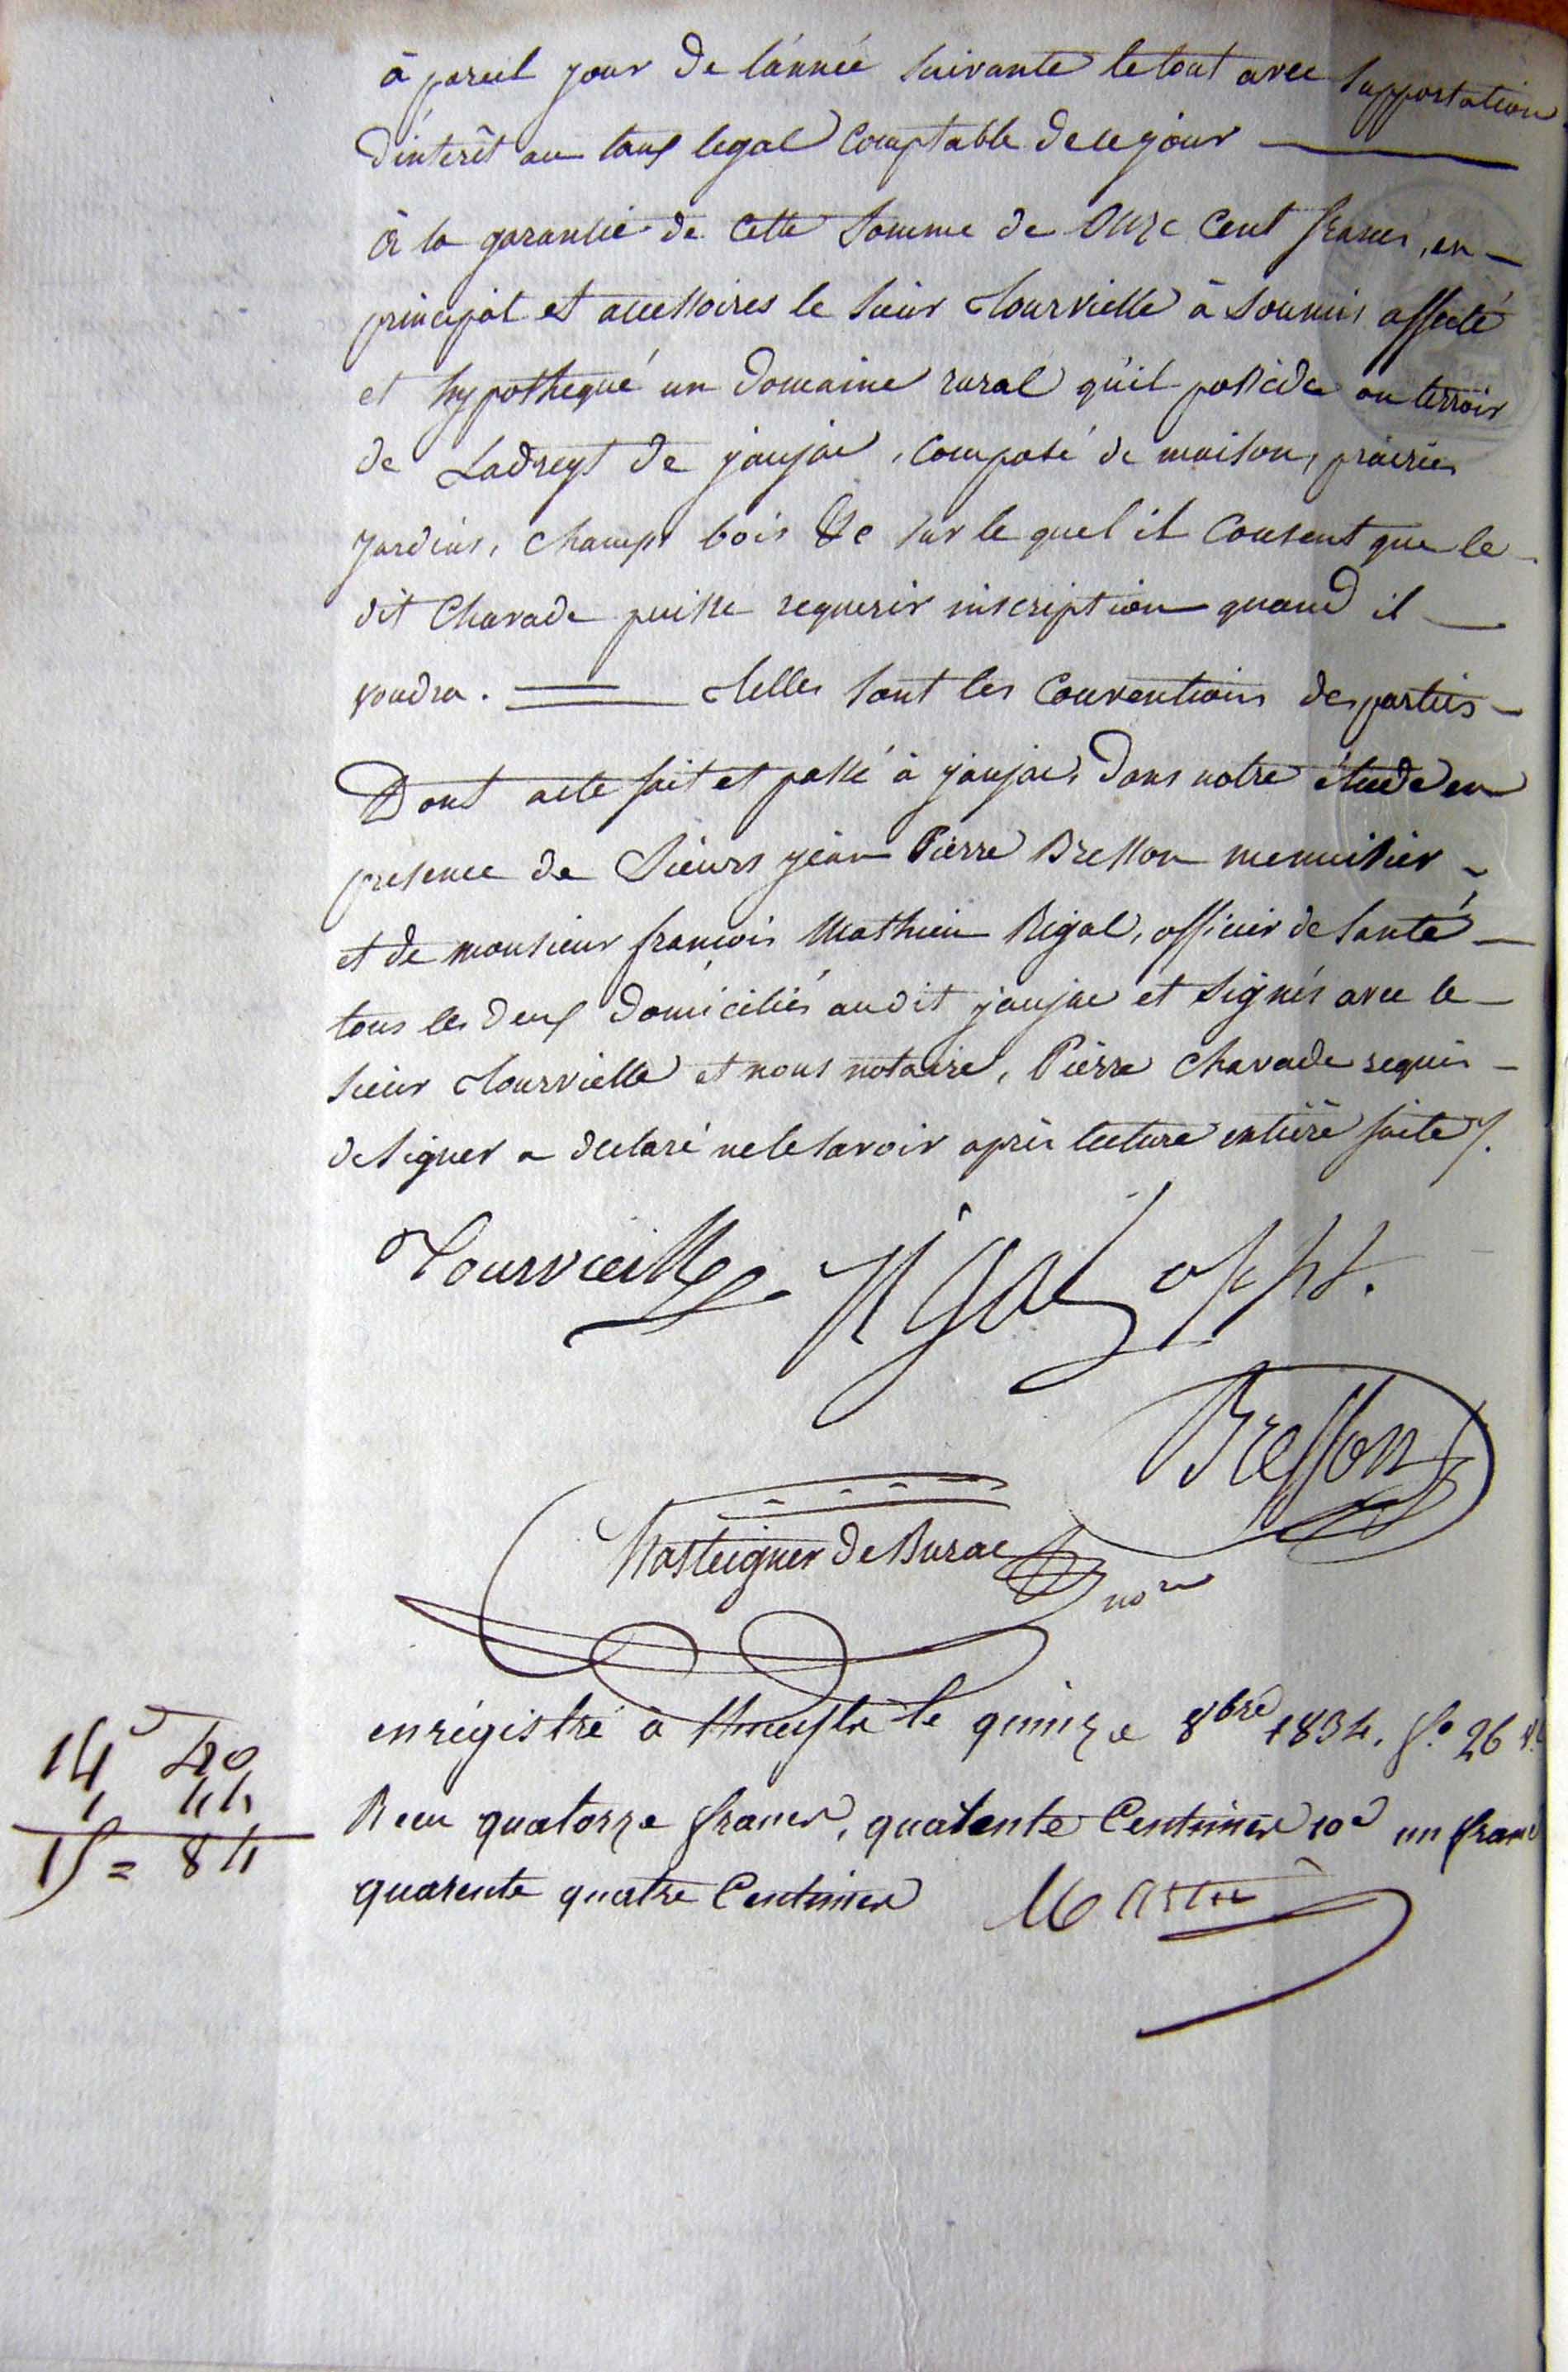 à pareil jour de l'année suivante le tout avec supportation
d'interêt au taux legal comptable de ce jour
à la garantie de cette somme de onze cent francs, en
principal et accessoires le sieur Tourvielle à soumis affecté
et hypothequé un domaine rural qu'il possède au terroir
de Ladreyt de jaujac, composé de maison, prairies
jardins, champs bois &c sur le quel il consent que le
dit Chavade puisse requerir inscription quand il
voudra. Telles sont les conventions des parties
Dont acte fait et passé à jaujac, dans notre étude en
presence de sieurs jean Pierre Bresson menuisier
et de monsieur françois Mathieu Rigal, officier de santé
tous les deux domiciliés au dit jaujac et signés avec le
sieur Tourvielle et nous notaire, Pierre Chavade requis
de signer a declaré ne le savoir après lecture entière faite /.
Tourvieille Rigal off. st.
Bresson
Hasteigner de Burac nore
enrégistré à Thueyts le quinze 8bre 1834. fo. 26
Recu quatorze francs, quarente Centimes 10e un franc
quarente quatre Centimes
14 40
1 44
15 = 84